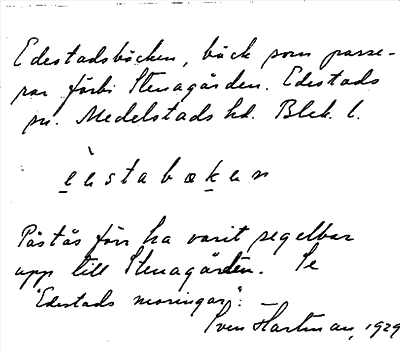 Edestadsbäcken, bäck som passe-
rar förbi Stenagården. Edestads
sn. Medelstads hd. Blek. l.
èɛstabækɛn
Påstås förr ha varit segelbar
upp till Stenagården. Se
"Edestads moringar":
Sven Hartman, 1929